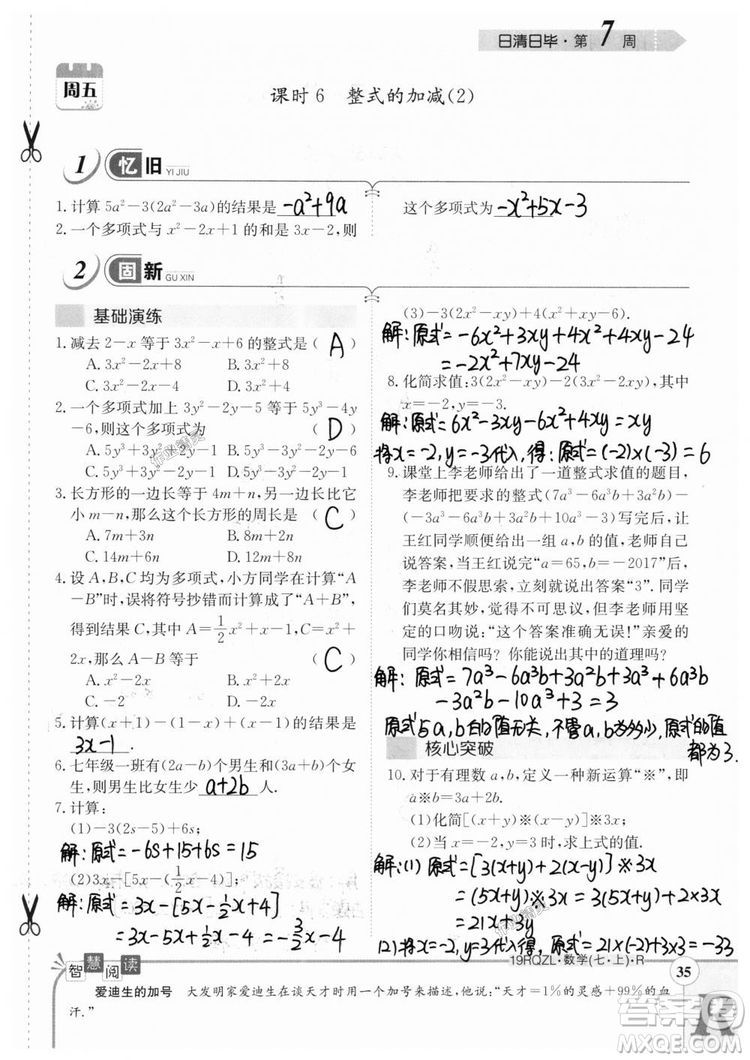 日清日毕·第7周
周五
课时6 整式的加减(2)
1 忆旧 YI JIU
1.计算5a²-3(2a²-3a)的结果是 -a²+9a
2.一个多项式与x²-2x+1的和是3x-2,则
这个多项式为 -x²+5x-3
2 固新 GU XIN
基础演练
1.减去2-x等于3x²-x+6的整式是( A )
A.3x²-2x+8 B.3x²+8
C.3x²-2x-4 D.3x²+4
2.一个多项式加上3y²-2y-5等于5y³-4y
-6,则这个多项式为 ( D )
3.长方形的一边长等于4m+n,另一边长比它
小m-n,那么这个长方形的周长是 ( C )
A.7m+3n B.8m+2n
C.14m+6n D.12m+8n
4.设A,B,C均为多项式,小方同学在计算“A
-B”时,误将符号抄错而计算成了“A+B”,
得到结果C,其中A=½x²+x-1,C=x²+
2x,那么A-B等于 ( C )
A.x²-2x B.x²+2x
C.-2 D.-2x
5.计算(x+1)-(1-x)+(x-1)的结果是
3x-1.
6.七年级一班有(2a-b)个男生和(3a+b)个女
生,则男生比女生少 a+2b 人.
7.计算:
(1)-3(2s-5)+6s;
解:原式=-6s+15+6s=15
(2)3x-[5x-(½x-4)];
解:原式=3x-[5x-½x+4]
=3x-5x+½x-4=-3/2x-4
(3)-3(2x²-xy)+4(x²+xy-6).
解:原式=-6x²+3xy+4x²+4xy-24
=-2x²+7xy-24
8.化简求值:3(2x²-xy)-2(3x²-2xy),其中
x=-2,y=-3.
解:原式=6x²-3xy-6x²+4xy=xy
将x=-2,y=-3代入,得:原式=(-2)×(-3)=6
9.课堂上李老师给出了一道整式求值的题目,
李老师把要求的整式(7a³-6a³b+3a²b)-
(-3a³-6a³b+3a²b+10a³-3)写完后,让
王红同学顺便给出一组a,b的值,老师自己
说答案,当王红说完“a=65,b=-2017”后,
李老师不假思索,立刻就说出答案“3”.同学
们莫名其妙,觉得不可思议,但李老师用坚
定的口吻说:“这个答案准确无误!”亲爱的
同学你相信吗?你能说出其中的道理吗?
解:原式=7a³-6a³b+3a²b+3a³+6a³b
-3a²b-10a³+3=3
原式与a,b的值无关,不管a,b为多少,原式的值
都为3.
核心突破
10.对于有理数a,b,定义一种新运算“※”,即
a※b=3a+2b.
(1)化简[(x+y)※(x-y)]※3x;
(2)当x=-2,y=3时,求上式的值.
解:(1)原式=[3(x+y)+2(x-y)]※3x
=(5x+y)※3x
=3(5x+y)+2·3x
=21x+3y
(2)将x=-2,y=3代入,得:原式=21×(-2)+3×3=-33
智慧阅读
19RQZL·数学(七·上)·R 35
爱迪生的加号 大发明家爱迪生在谈天才时用一个加号来描述,他说:“天才=1%的灵感+99%的血
汗.”
答案圈
MXQE.COM